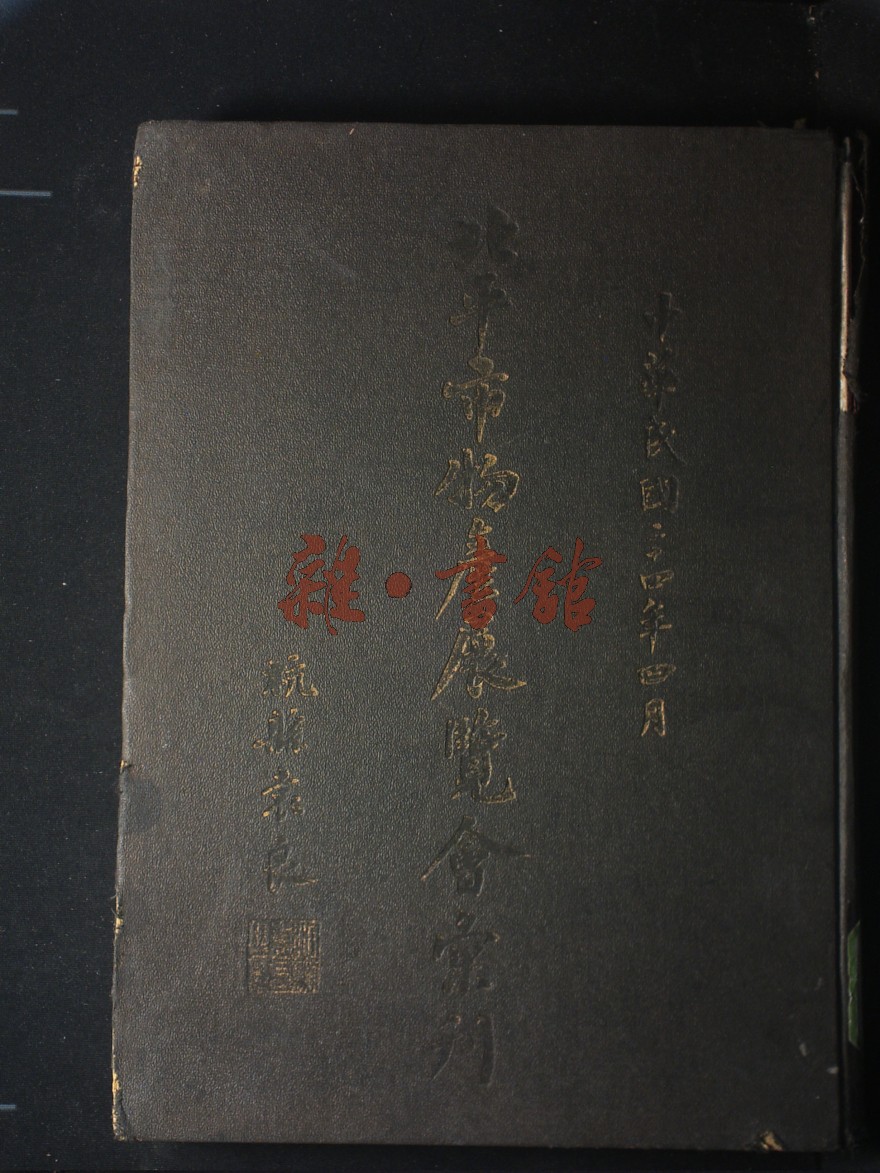 中華民國二十四年四月
北平市物產展覽會彙刊
杭縣袁良
雜·書館